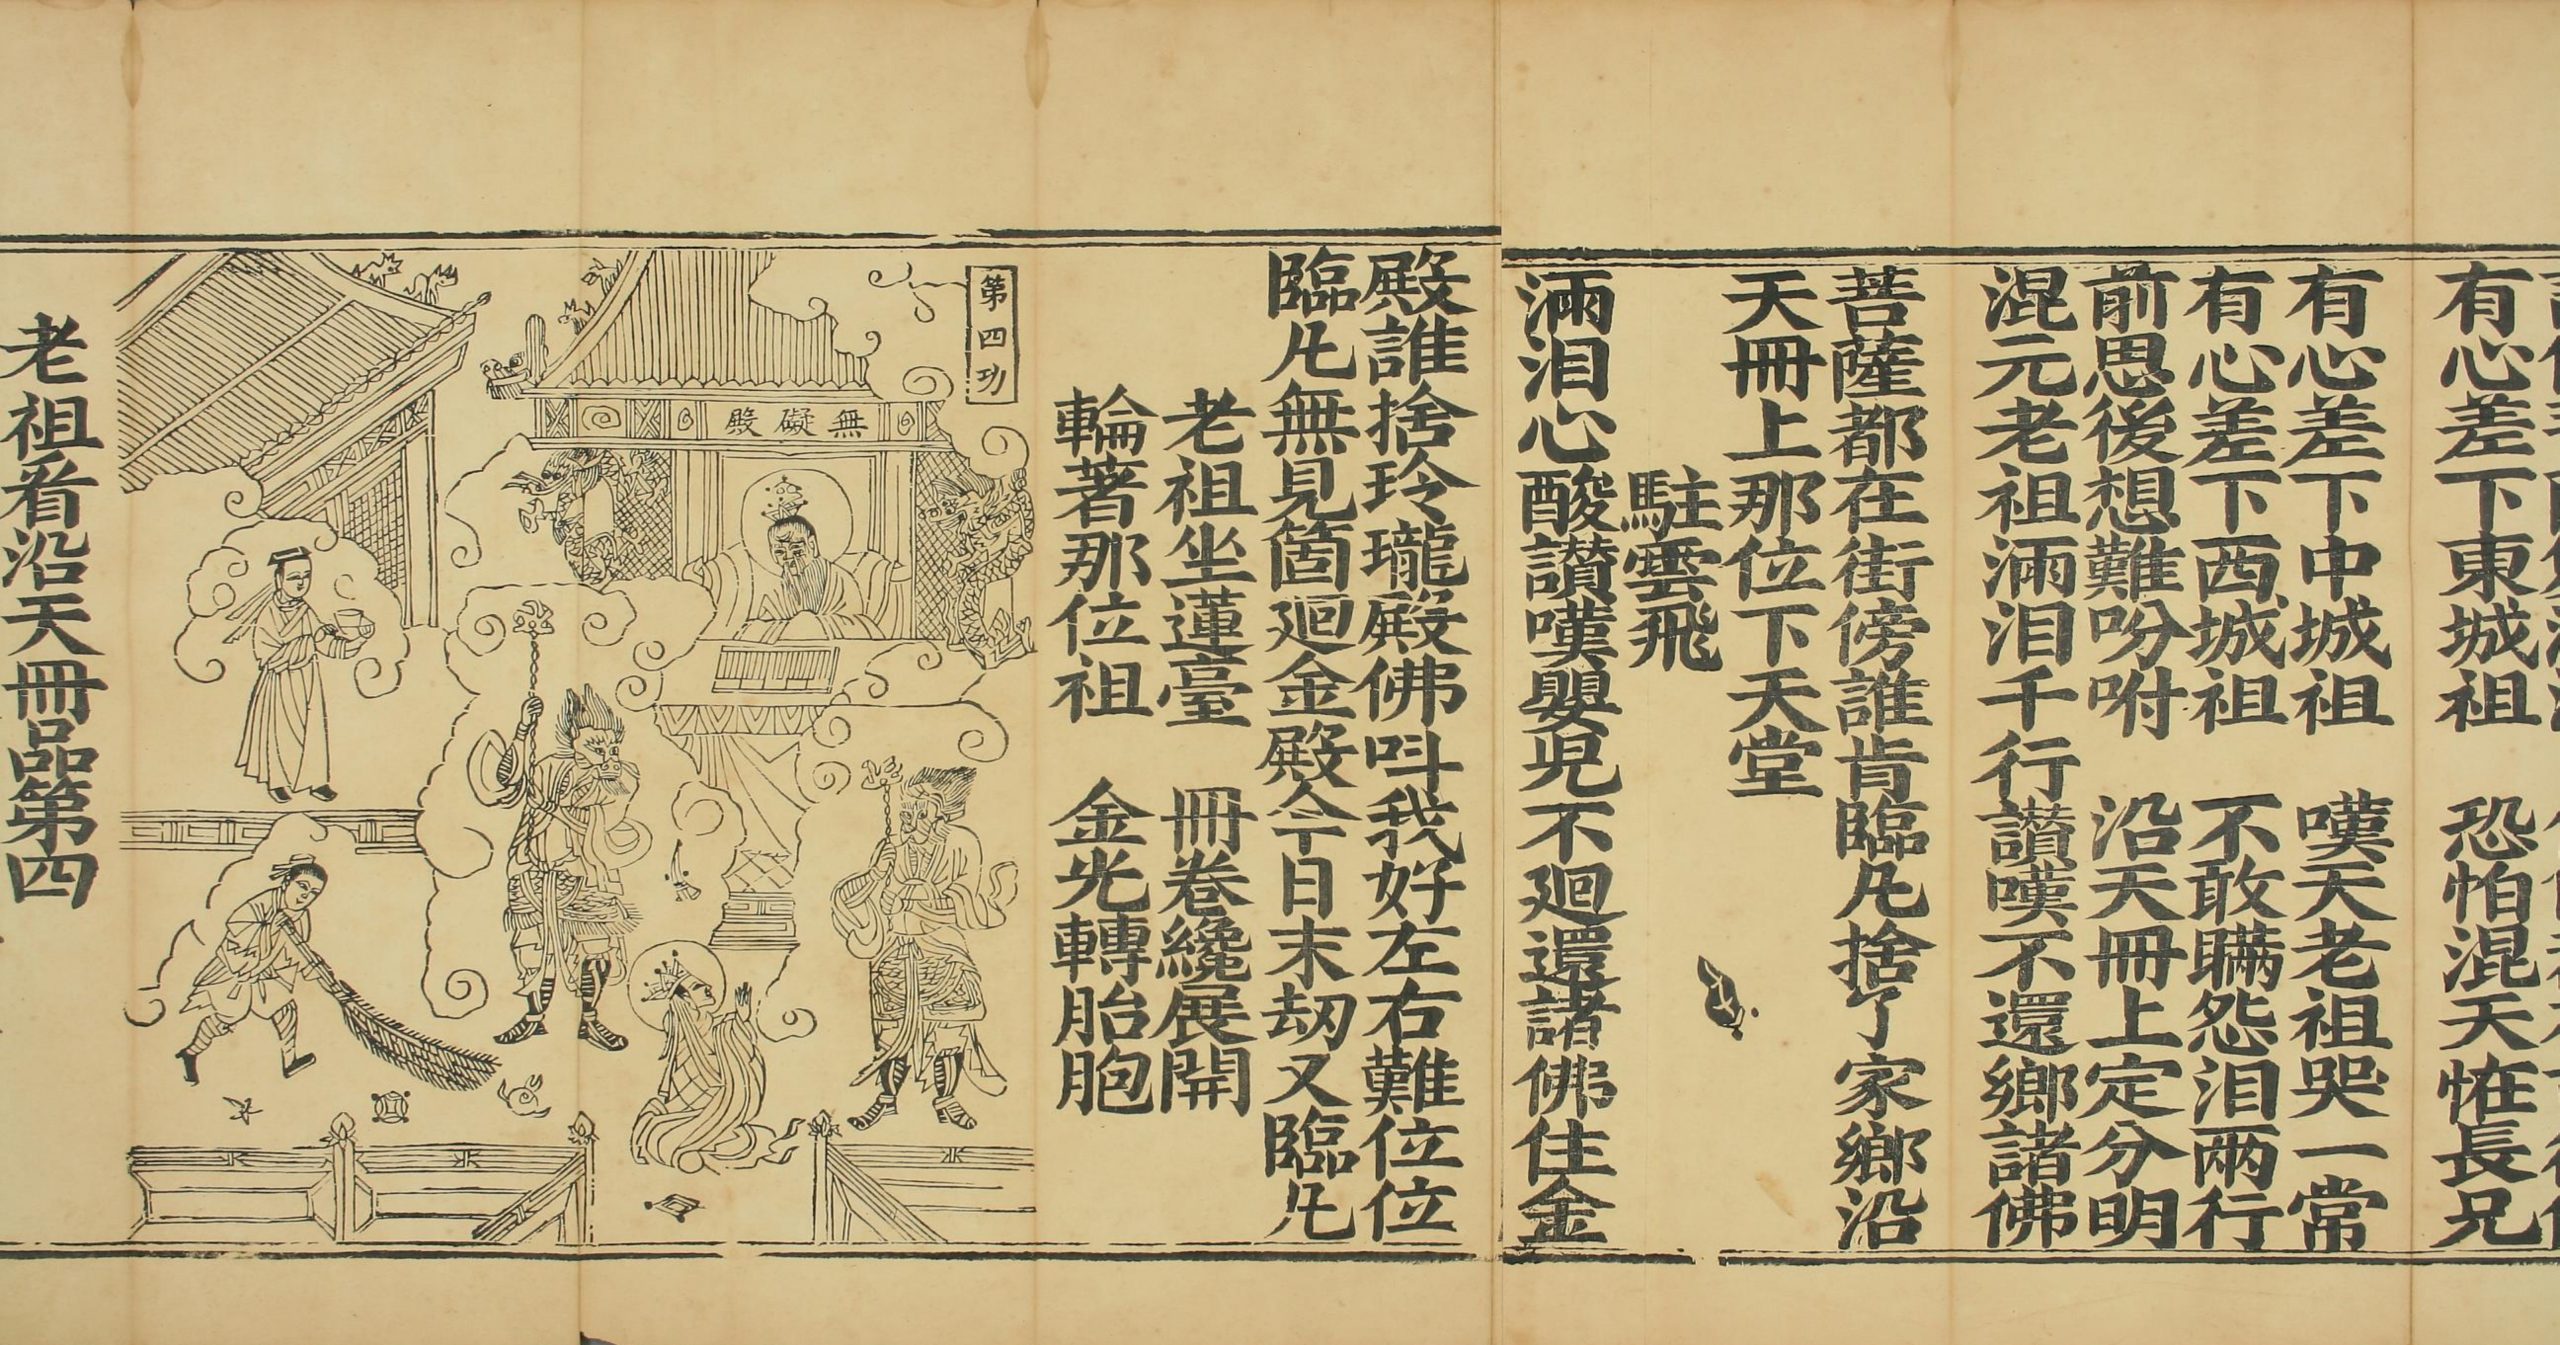 有心差下東城祖　恐怕混天怪長兄
有心差下中城祖　嘆天老祖哭一常
有心差下西城祖　不敢瞞怨泪兩行
前思後想難吩咐　沿天冊上定分明
混元老祖滿泪千行讃嘆不還鄉諸佛
菩薩都在街傍誰肯臨凡捨了家鄉沿
天冊上那位下天堂
駐雲飛
滿泪心酸讃嘆嬰児不廻還諸佛住金
殿誰捨玲瓏殿佛呌我好左右難位位
臨凡無見箇廻金殿今日末刼又臨凡
老祖坐蓮臺　冊卷纔展開
輪著那位祖　金光轉胎胞
第四功
無礙殿
老祖看沿天冊品第四